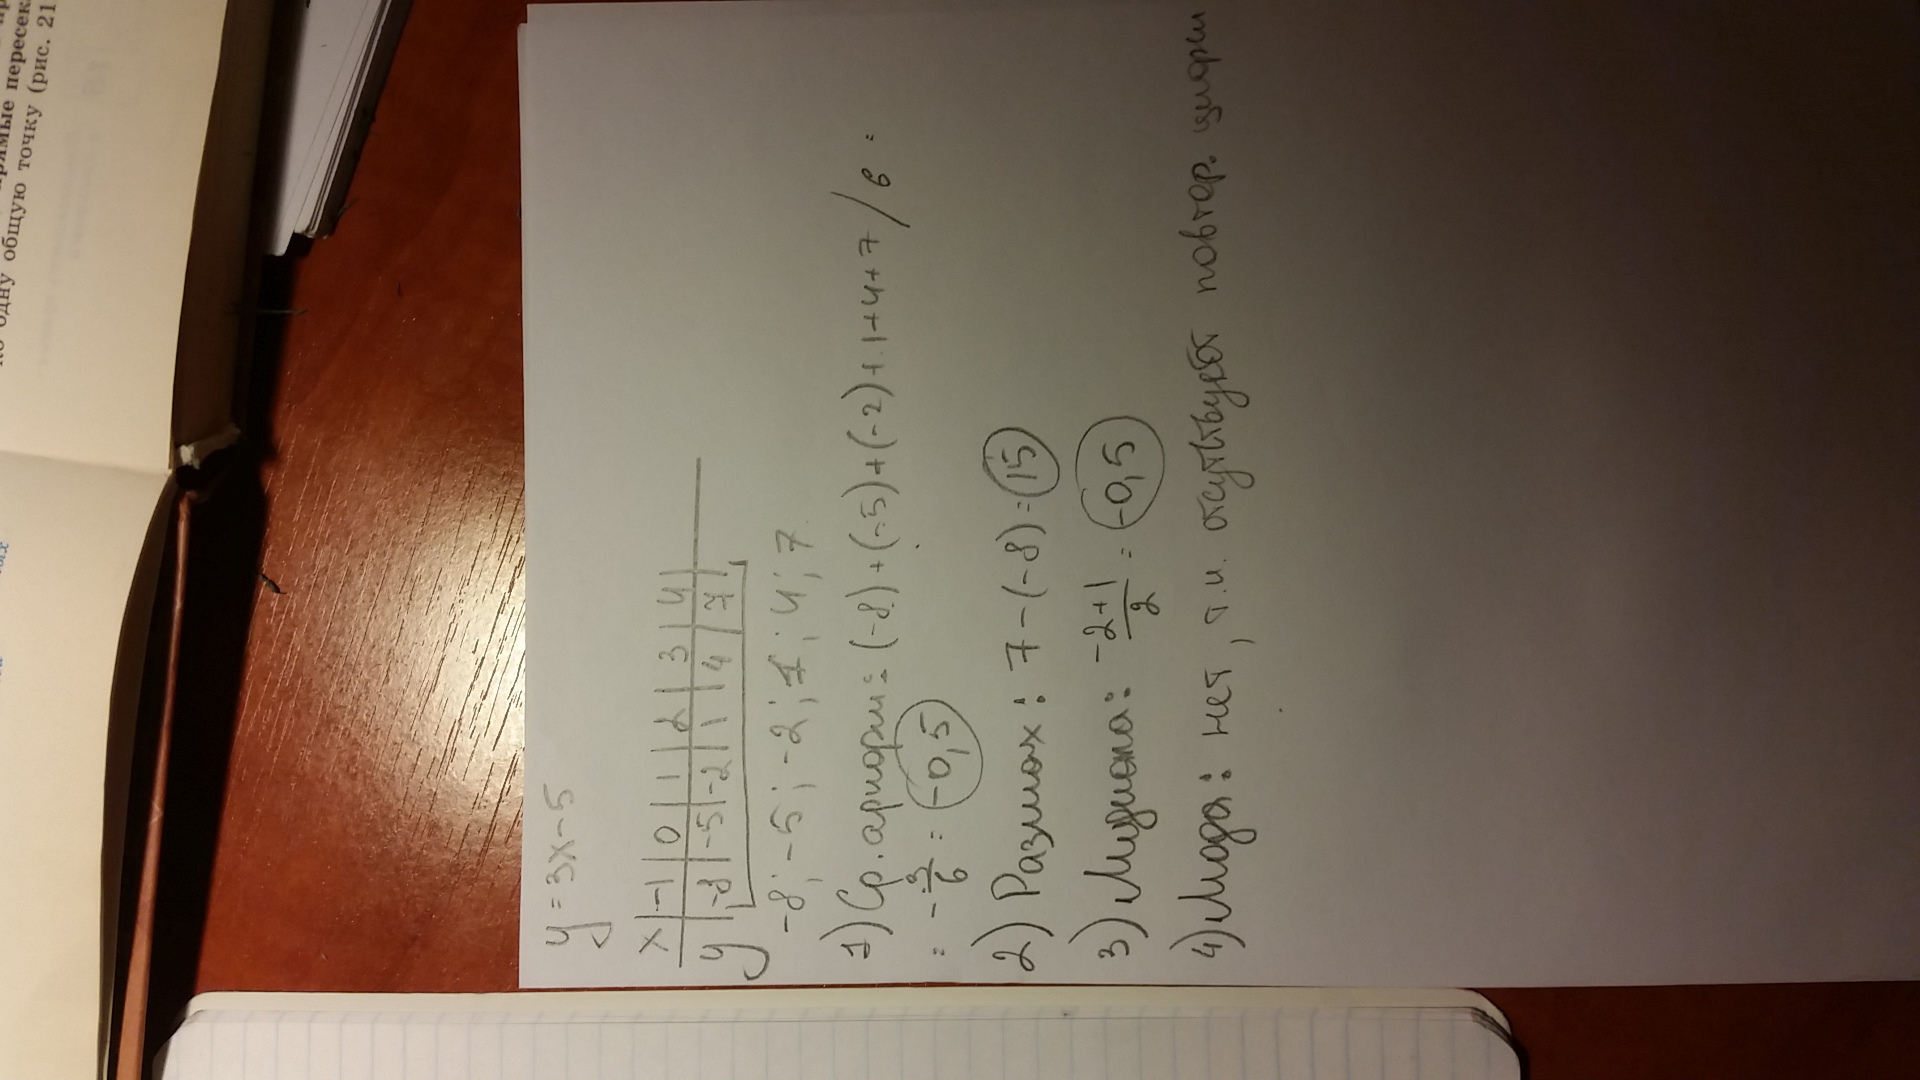 прямые пересек
но одну общую точку (рис. 21
ных
y = 3x - 5
x | -1 | 0 | 1 | 2 | 3 | 4 |
y | -8 | -5 | -2 | 1 | 4 | 7 |
-8; -5; -2; 1; 4; 7.
1) Ср. арифм = (-8) + (-5) + (-2) + 1 + 4 + 7 / 6 =
= - 3/6 = -0,5
2) Размах: 7 - (-8) = 15
3) Медиана: -2+1/2 = -0,5
4) Мода: нет, т.к. отсутствуют повтор. цифры